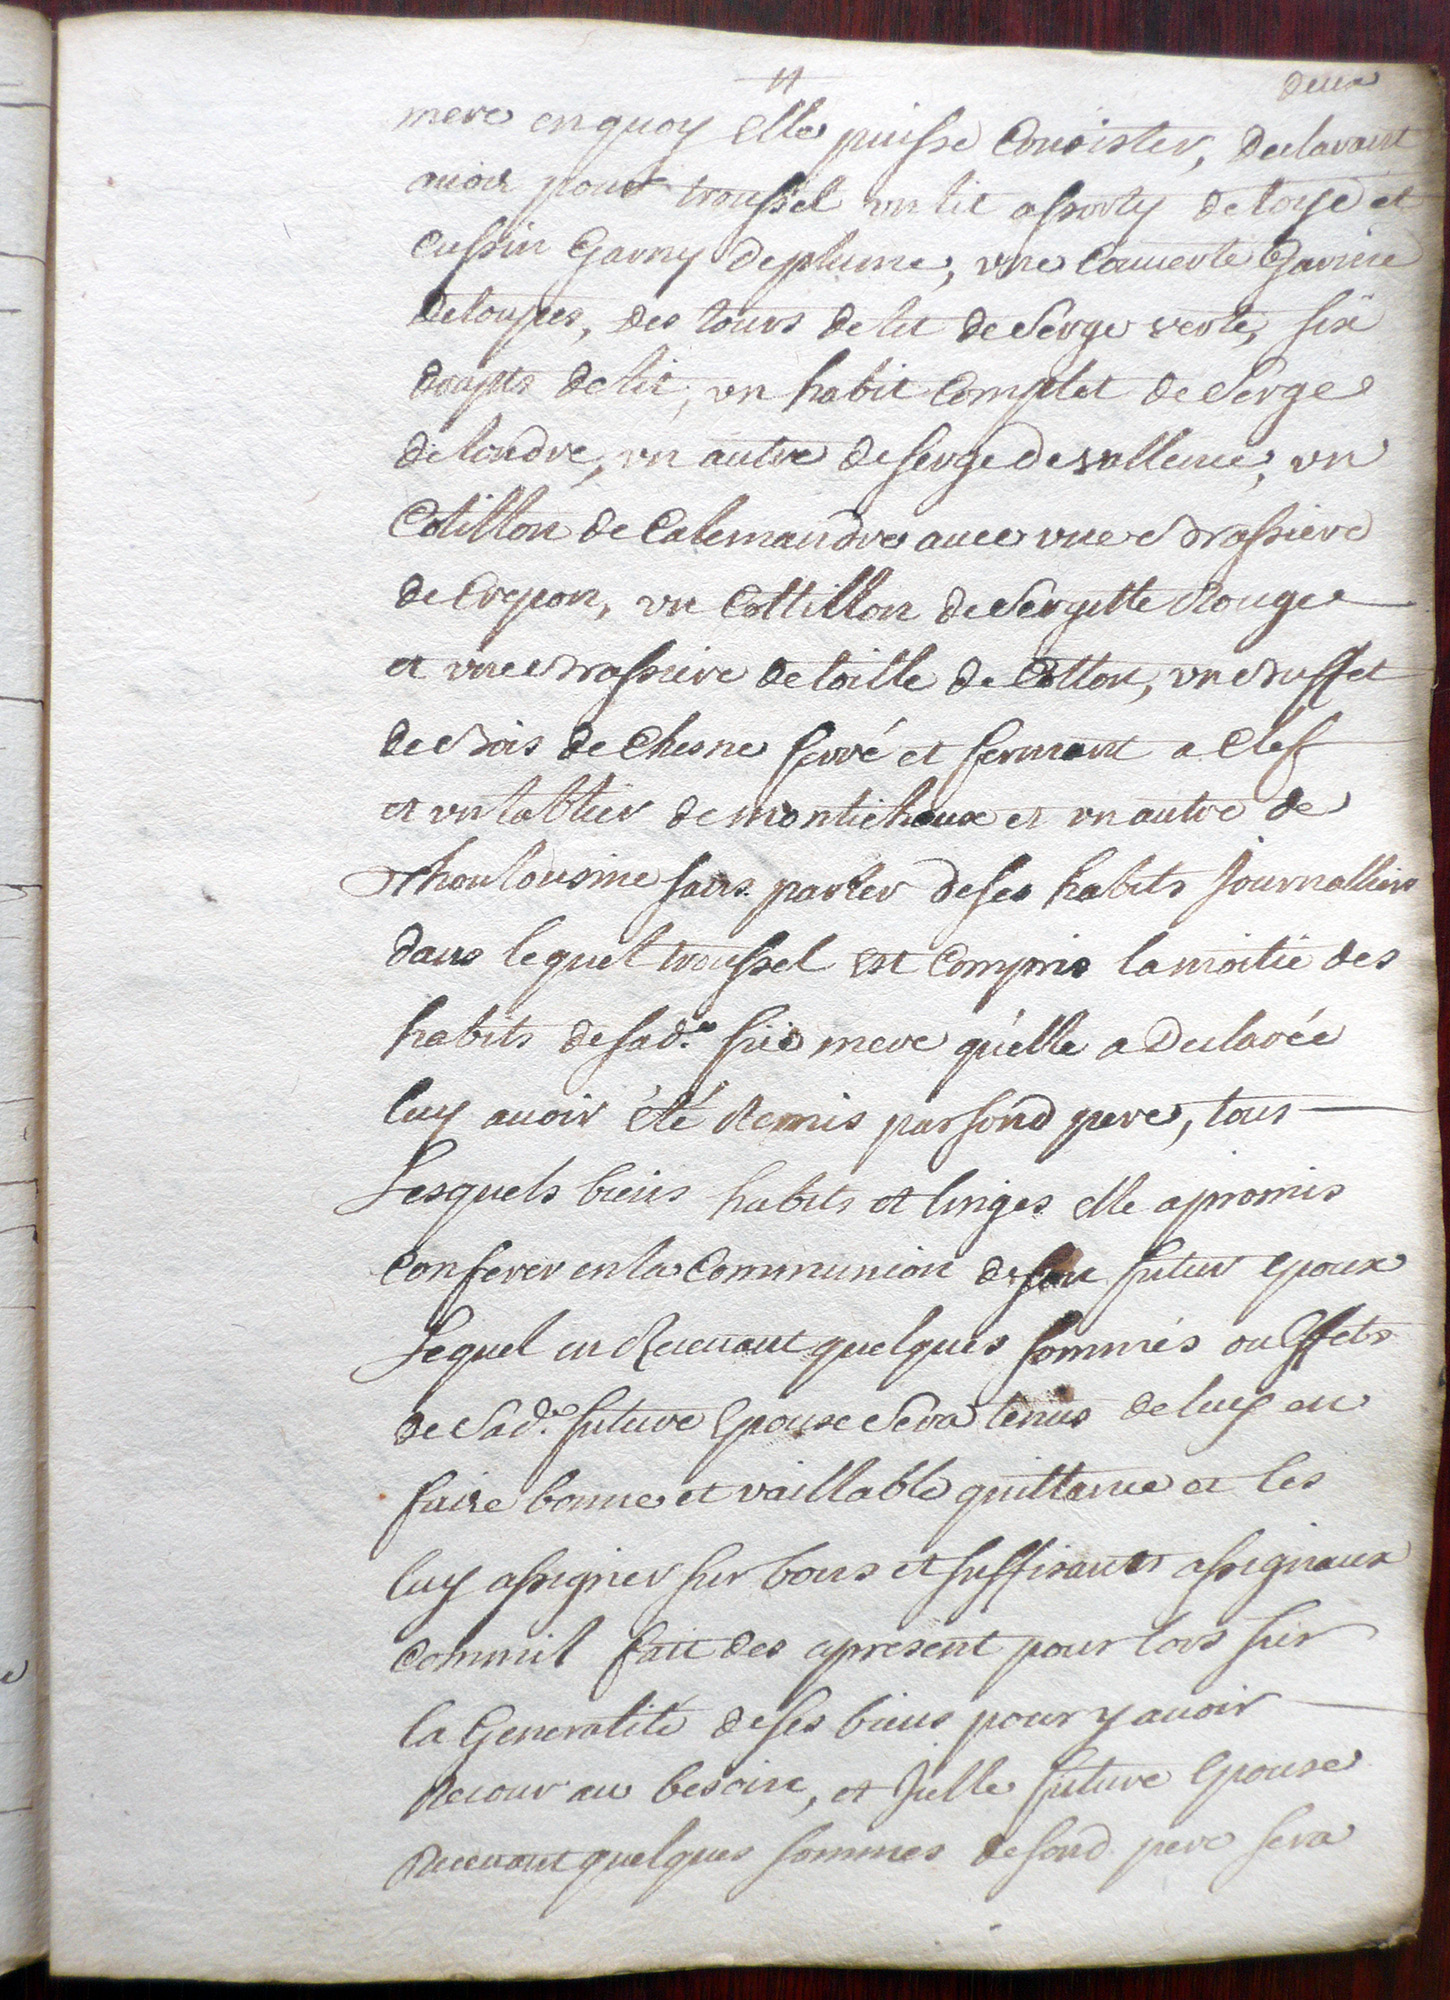 deux
mere en quoy elle puisse Consister, declarant
auoir pour troussel un lit assorty de loise et
Cussin Garny deplume, une Couuerte Garnie
deloupes, des tours delit de serge verte, six
draps delit, un habit Complet de serge
delondre, un autre deserge de vallence, un
Cotillon de Calemandre auec une Brassiere
de Crepon, un Cottillon de sergette Rouge
et une Brassiere detoille de Cotton, un Buffet
de Bois de Chesne ferré et fermant a Clef
et un tablier de montichoux et un autre de
Thoulousine sans parler deses habits Journalliers
dans lequel troussel est Compris lamoitié des
habits desad.e füe mere qu'elle a Declarée
luy auoir été Remis parsond pere, tous
Lesquels biens habits et linges elle apromis
Conferer enla Communion de son futur Epoux
Lequel en Receuant quelques sommes ou Effets
de sad.e future Epouse sera tenus deluy en
faire bonne et vaillable quittance et les
luy assigner sur bons et suffisants assignaux
Commil fait des apresent pour lors sur
la Generalité deses biens pour y auoir
Recour au besoin, et Jcelle future Epouse
Receuant quelques sommes desond pere sera